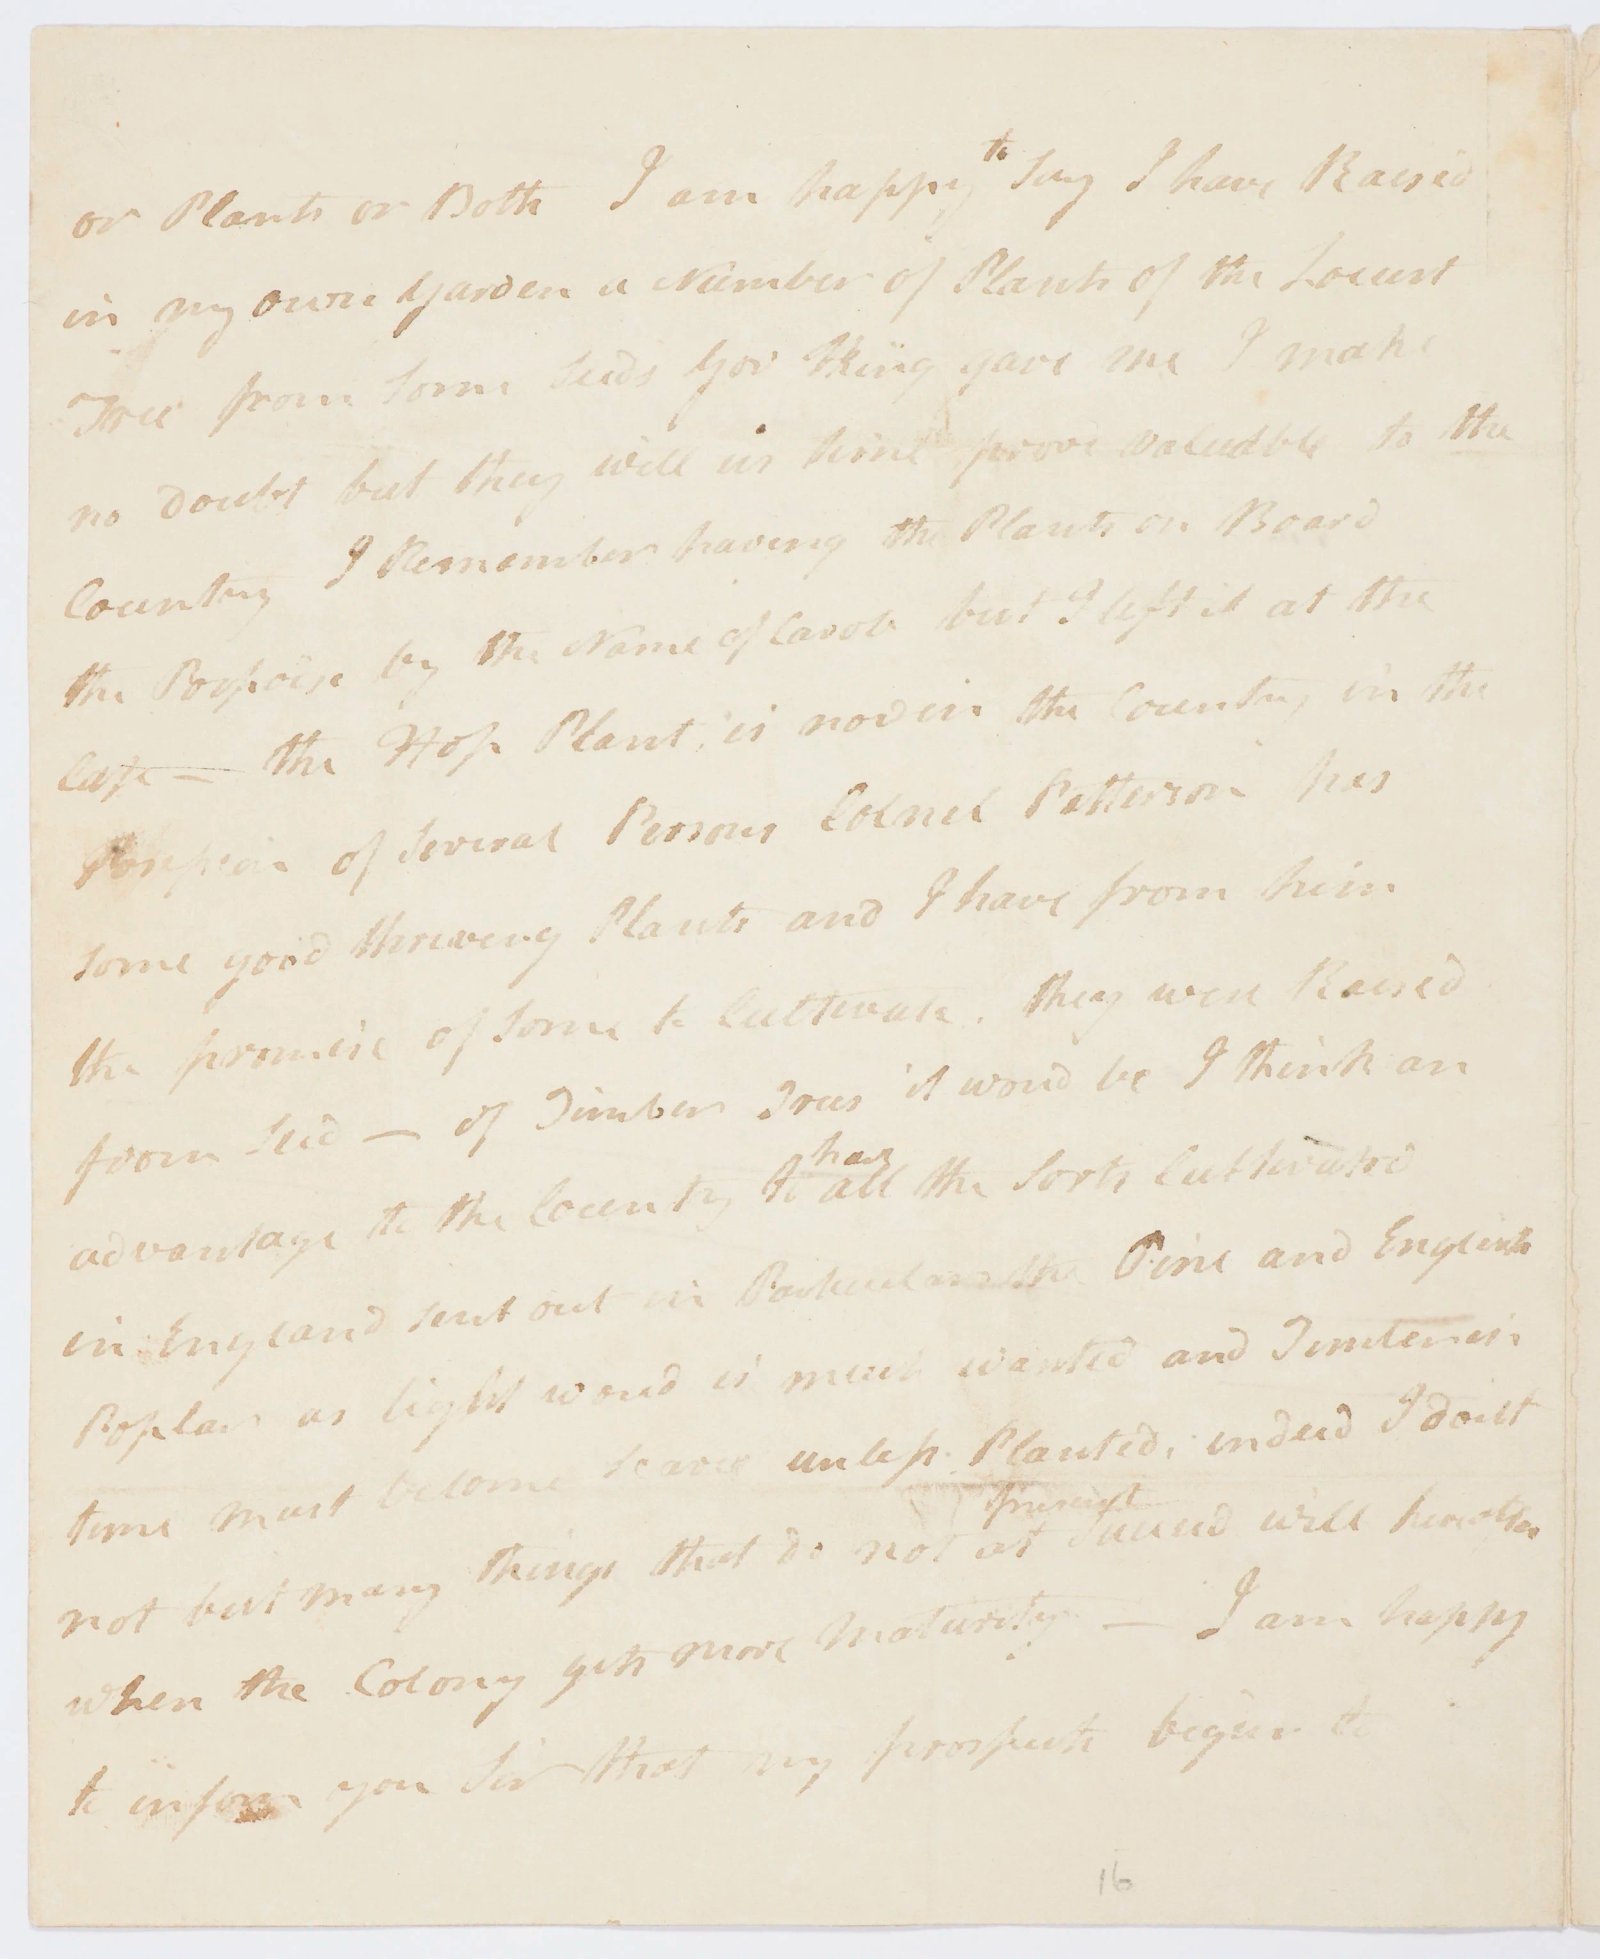 or Plants or Both I am happy to Say I have Raised
in my own Garden a Number of Plants of the Locust
Tree from some seeds Gov King gave me I make
no doubt but they will in time prove valuable to the
Country I Remember having the Plants on Board
the Porpoise by the Name of Carob but I left it at the
Cape — the Hop Plant is now in the Country in the
of several Persons Colnel Patterson has
some good thriveing Plants and I have from him
the promise of some to Cultivate. they were Raised
from seed — of Timber Trees it woud be I think an
advantage to the Country to have all the Sorts Cultivated
in England sent out in Particular the Pine and English
Poplar as light wood is much wanted and Timber in
time must become scarce unless Planted, indeed I doubt
not but many things that do not at present succeed will hereafter
when the Colony gets more maturity — I am happy
to inform you Sir that my prospects begin to
16